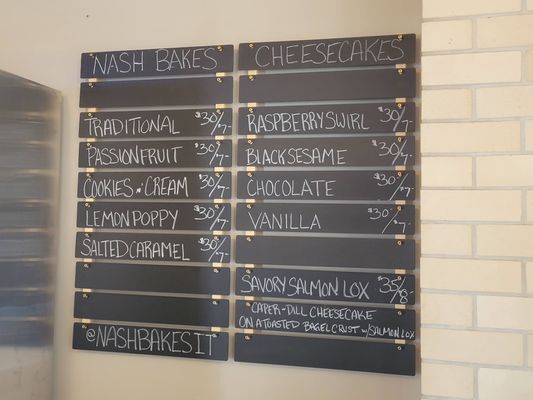 NASH BAKES
TRADITIONAL $30/7
PASSIONFRUIT $30/7
COOKIES N' CREAM $30/7
LEMON POPPY $30/7
SALTED CARAMEL $30/7
@NASHBAKESIT
CHEESECAKES
RASPBERRY SWIRL $30/7
BLACK SESAME $30/7
CHOCOLATE $30/7
VANILLA $30/7
SAVORY SALMON LOX $35/8
CAPER-DILL CHEESECAKE
ON A TOASTED BAGEL CRUST w/SALMON LOX